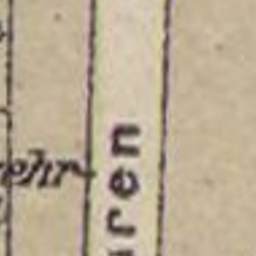 ehr
uren